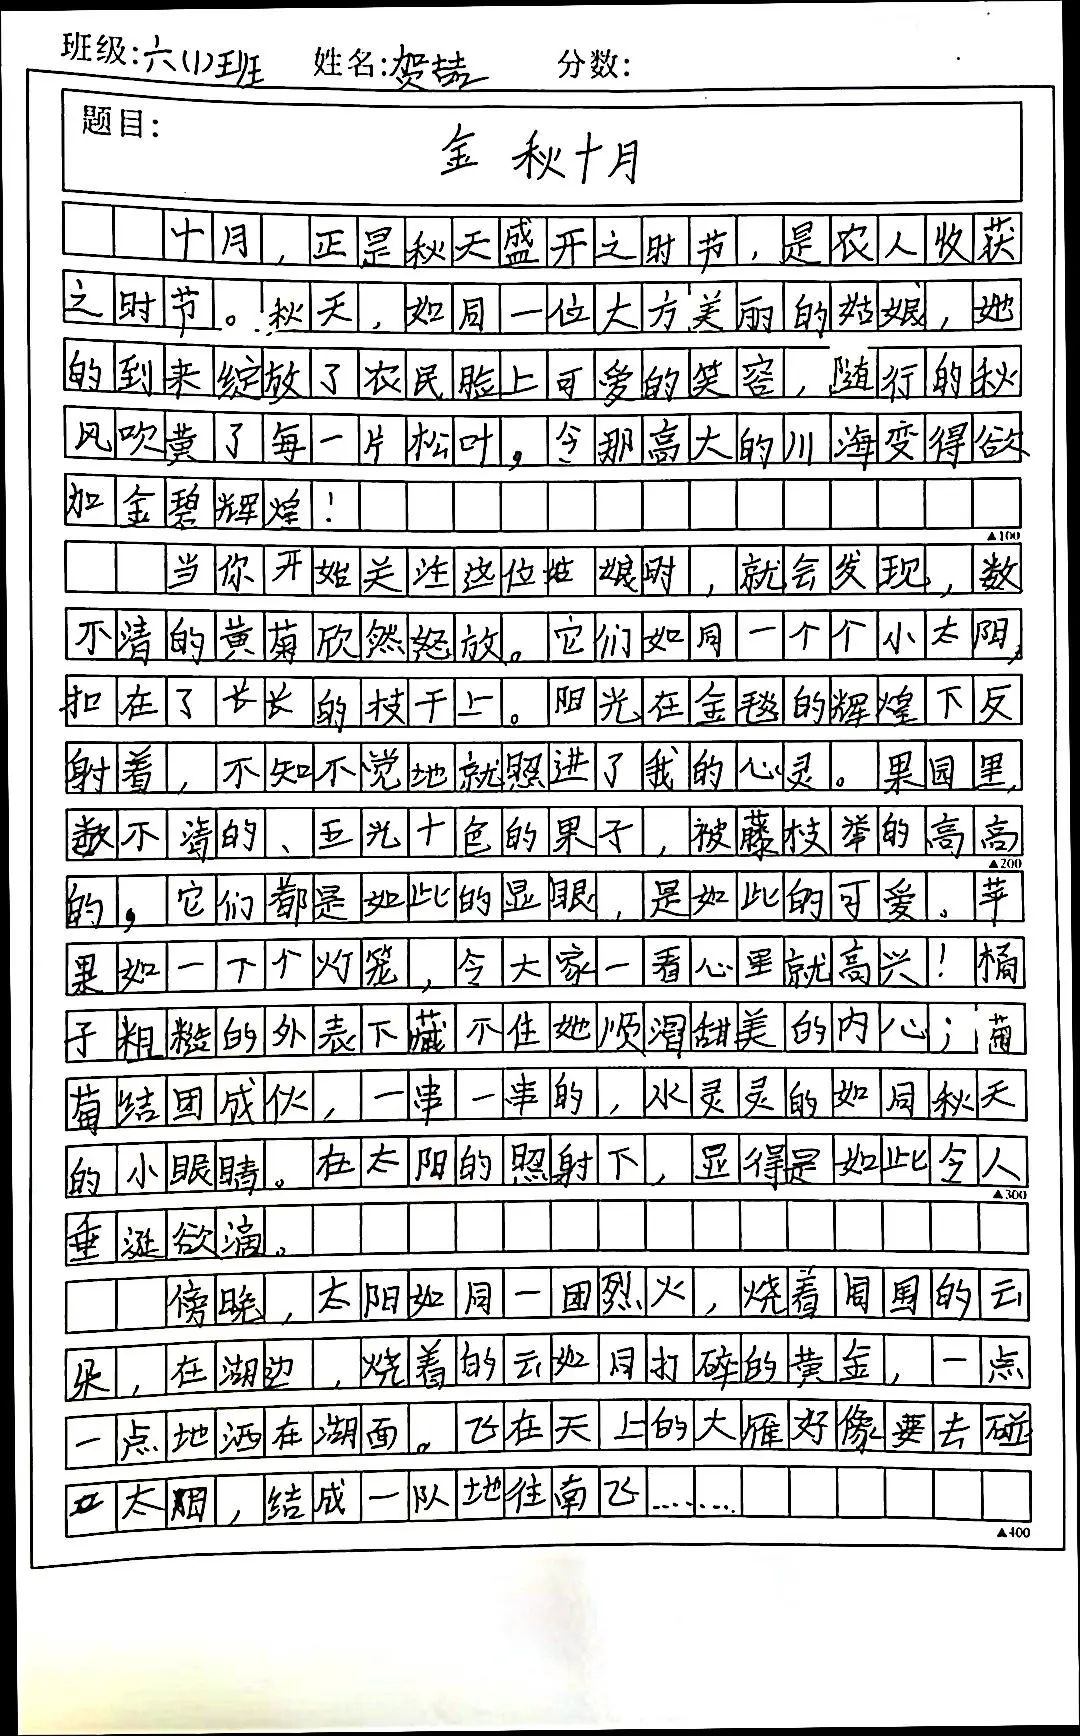 班级:六(1)班 姓名:贺喆 分数:
题目:
金秋十月
十月，正是秋天盛开之时节，是农人收获
之时节。秋天，如同一位大方美丽的姑娘，她
的到来绽放了农民脸上可爱的笑容，随行的秋
风吹黄了每一片松叶，令那高大的川海变得欲
加金碧辉煌！
▲100
当你开始关注这位姑娘时，就会发现，数
不清的黄菊欣然怒放。它们如同一个个小太阳，
扣在了长长的枝干上。阳光在金毯的辉煌下反
射着，不知不觉地就照进了我的心灵。果园里，
数不清的、五光十色的果子，被藤枝举的高高
▲200
的，它们都是如此的显眼，是如此的可爱。苹
果如一下个灯笼，令大家一看心里就高兴！橘
子粗糙的外表下藏不住她顺滑甜美的内心；葡
萄结团成伙，一串一串的，水灵灵的如同秋天
的小眼睛。在太阳的照射下，显得是如此令人
▲300
垂涎欲滴。
傍晚，太阳如同一团烈火，烧着周围的云
朵，在湖边，烧着的云如同打碎的黄金，一点
一点地洒在湖面。飞在天上的大雁好像要去碰
太阳，结成一队地往南飞……
▲400